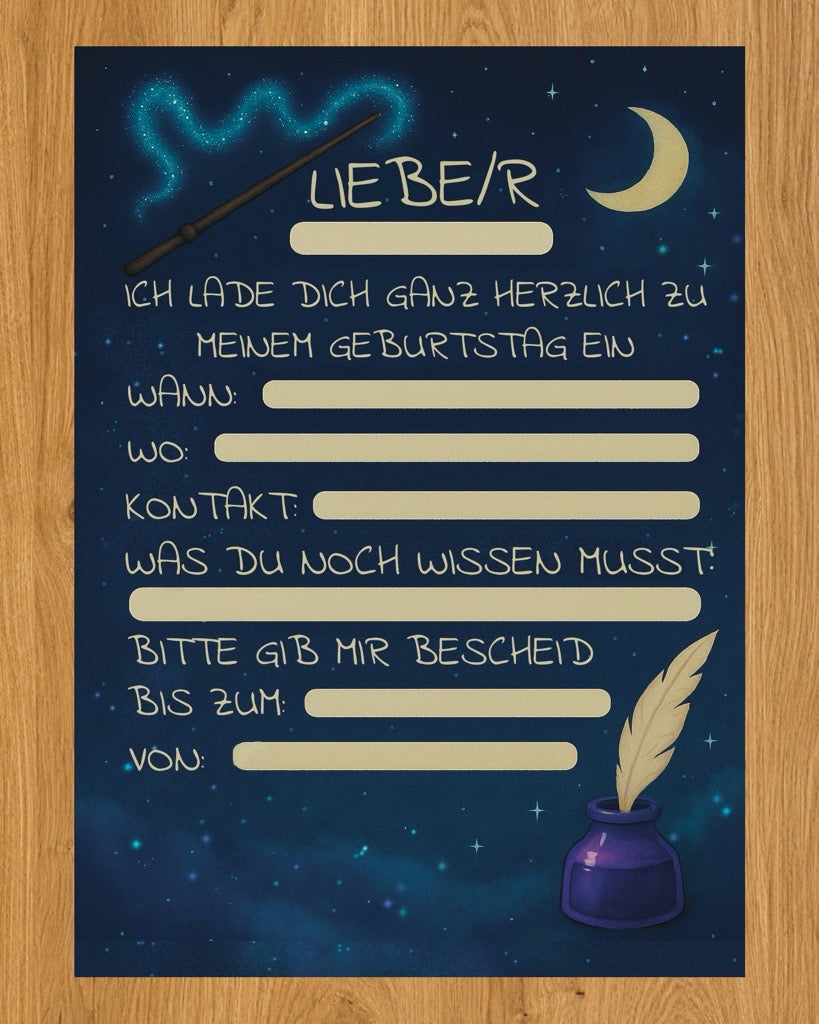 LIEBE/R
ICH LADE DICH GANZ HERZLICH ZU
MEINEM GEBURTSTAG EIN
WANN:
WO:
KONTAKT:
WAS DU NOCH WISSEN MUSST:
BITTE GIB MIR BESCHEID
BIS ZUM:
VON: